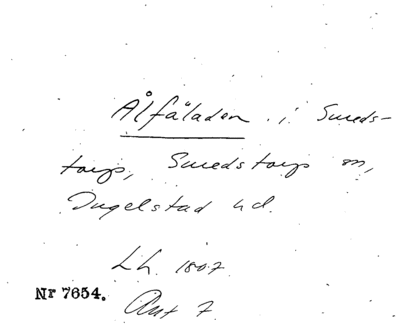 Ålfäladen i Smeds-
torps, Smedstorps sn,
Ingelstad hd.
Lh. 1807.
Nr 7654.
Akt 7